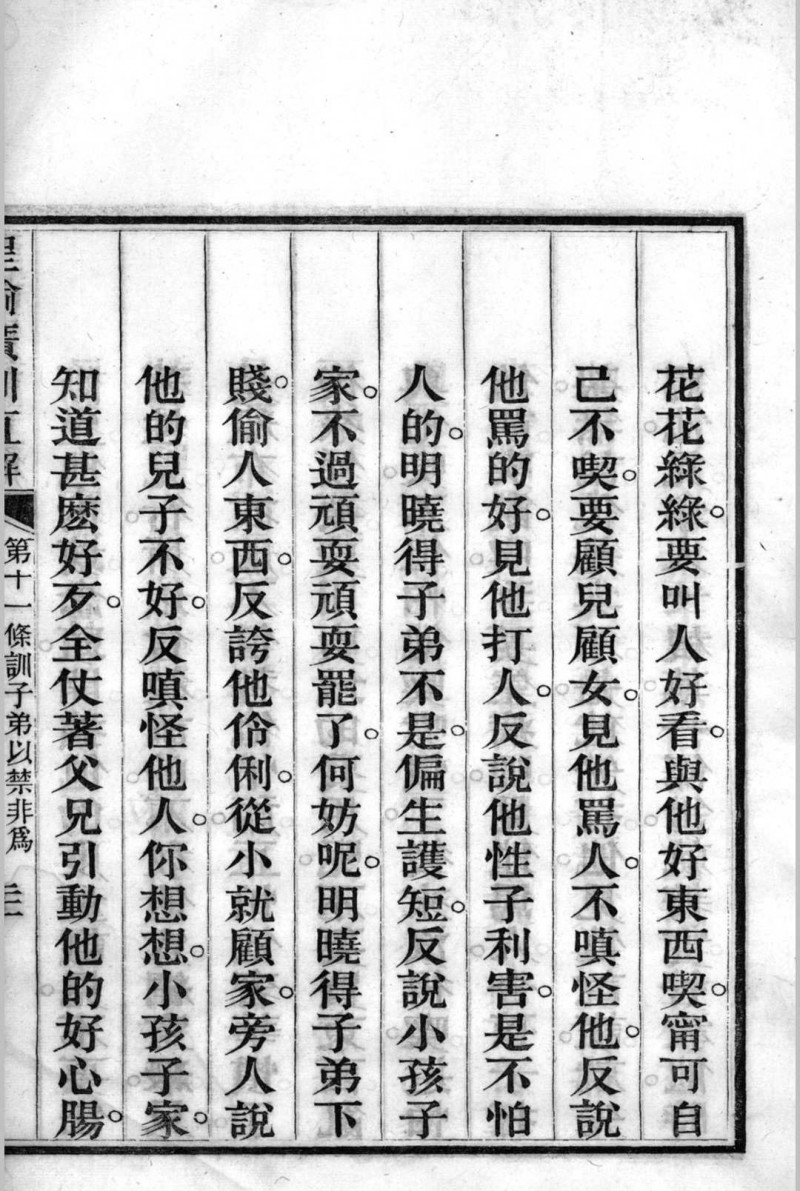 花花綠綠。要叫人好看。與他好東西喫。甯可自
己不喫。要顧兒顧女。見他罵人。不嗔怪他。反說
他罵的好。見他打人。反說他性子利害。是不怕
人的。明曉得子弟不是。偏生護短。反說小孩子
家。不過頑耍頑耍罷了。何妨呢。明曉得子弟下
賤。偷人東西。反誇他伶俐。從小就顧家。旁人說
他的兒子不好。反嗔怪他人。你想想。小孩子家。
知道甚麽好歹。全仗著父兄引動他的好心腸。
聖諭廣訓直解 第十一條訓子弟以禁非爲